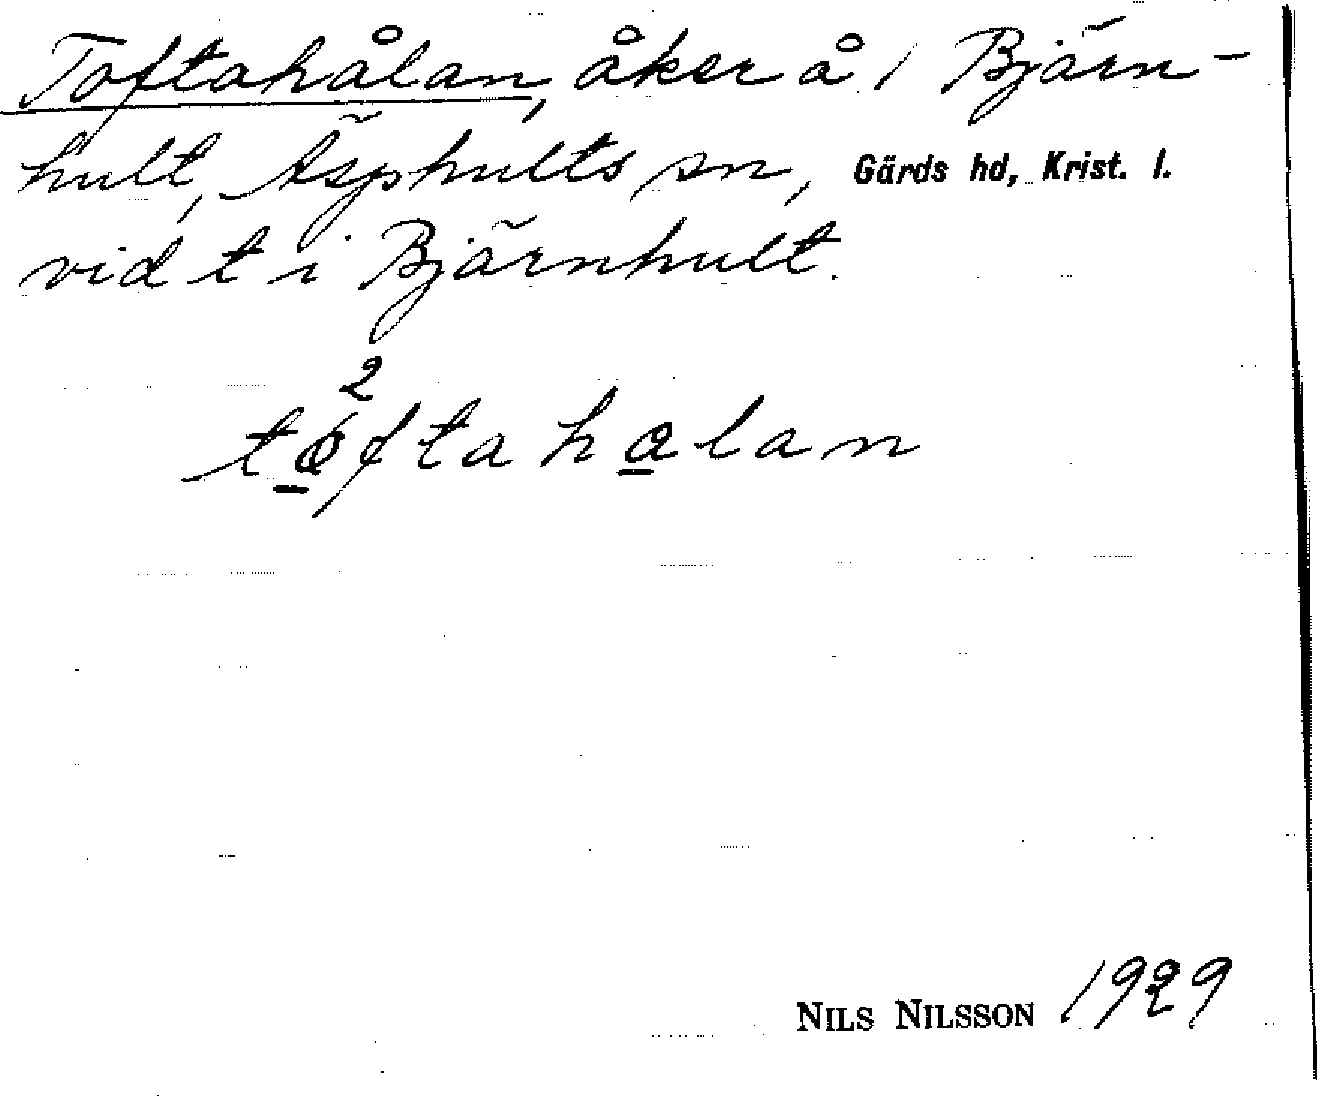 Toftahålan, åker å 1 Bjärn-
hult, Äsphults sn, Gärds hd, Krist. l.
vid t i Bjärnhult.
2
toftaholan
NILS NILSSON 1929